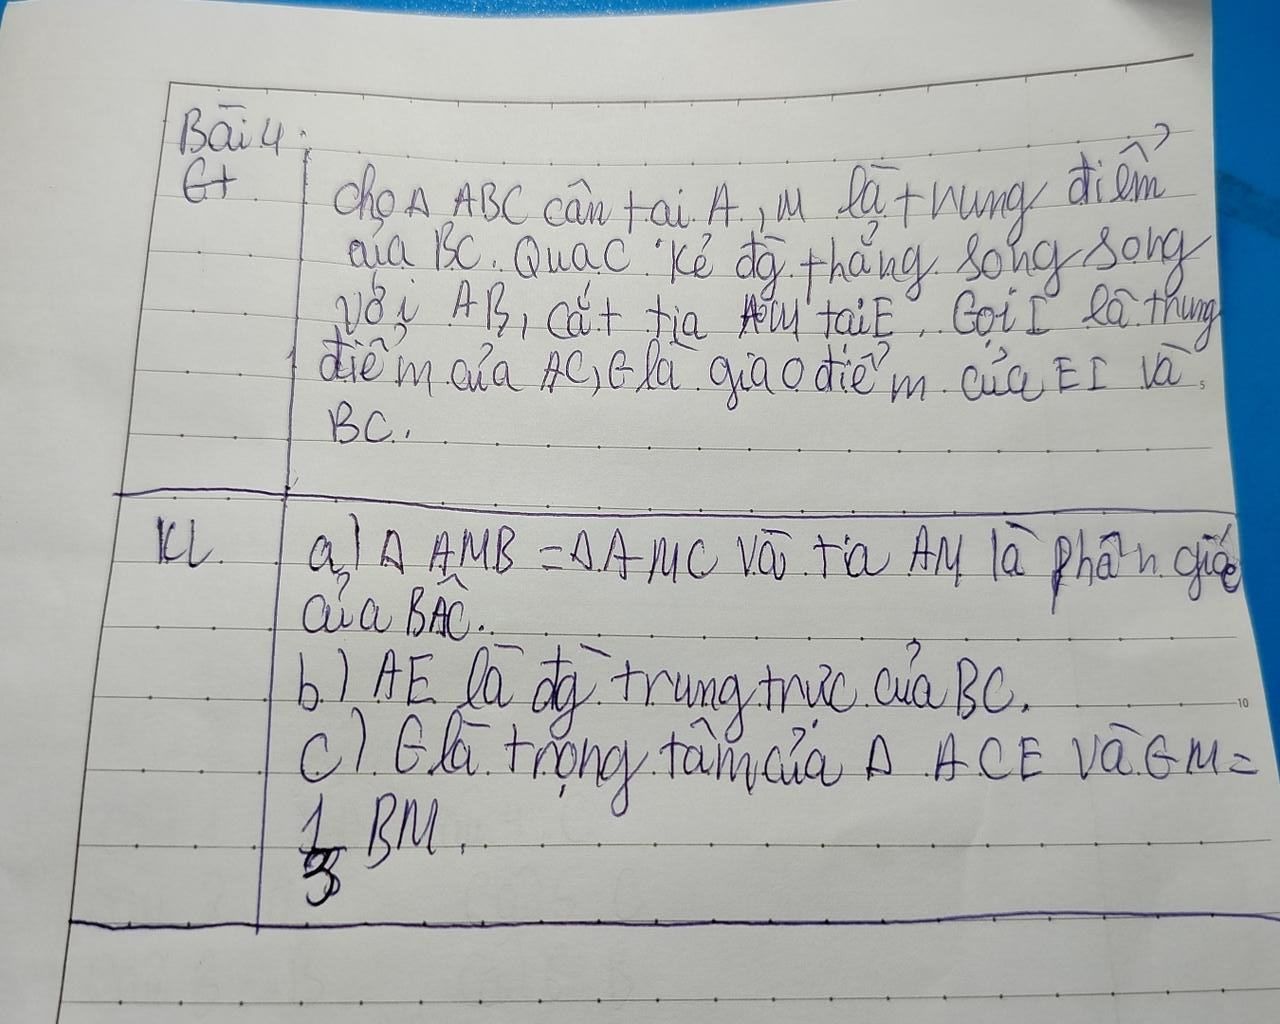 Bài 4.
Gt cho Δ ABC cân tại A, M là trung điểm
của BC. Qua C kẻ đg thẳng song song
với AB, cắt tia AM tại E. Gọi I là trung
điểm của AC, G là giao điểm của EI và
BC.
KL a) Δ AMB = Δ AMC và tia AM là phân giác
của BAC.
b) AE là đg trung trực của BC.
c) G là trọng tâm của Δ ACE và GM =
1/3 BM.
5
10